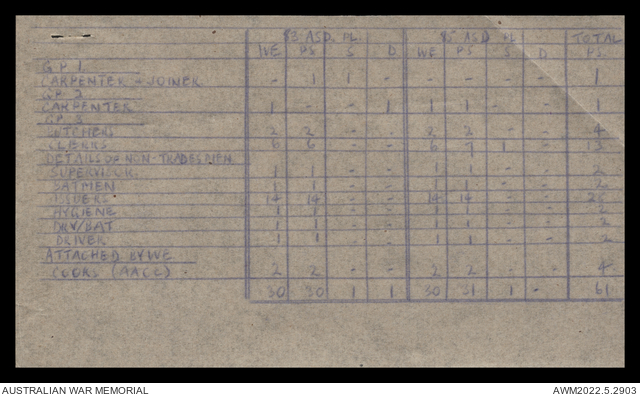 83 ASD. PL. 85 ASD PL TOTAL
WE PS S D WE PS S D PS.
GP 1.
CARPENTER - JOINER - 1 1 - - - - - 1
GP 2.
CARPENTER 1 - - 1 1 1 - - 1
GP 3
BUTCHERS 2 2 - - 2 2 - - 4
CLERKS 6 6 - - 6 7 1 - 13
DETAILS OF NON-TRADESMEN
SUPERVISOR 1 1 - - 1 1 - - 2
BATMEN 1 1 - - 1 1 - - 2
14 14 - - 14 14 - - 28
HYGIENE 1 1 - - 1 1 - - 2
DRV/BAT 1 1 - - 1 1 - - 2
DRIVER 1 1 - - 1 1 - - 2
ATTACHED BY WE
COOKS (AACC) 2 2 - - 2 2 - - 4
30 30 1 1 30 31 1 - 61
AUSTRALIAN WAR MEMORIAL AWM2022.5.2903